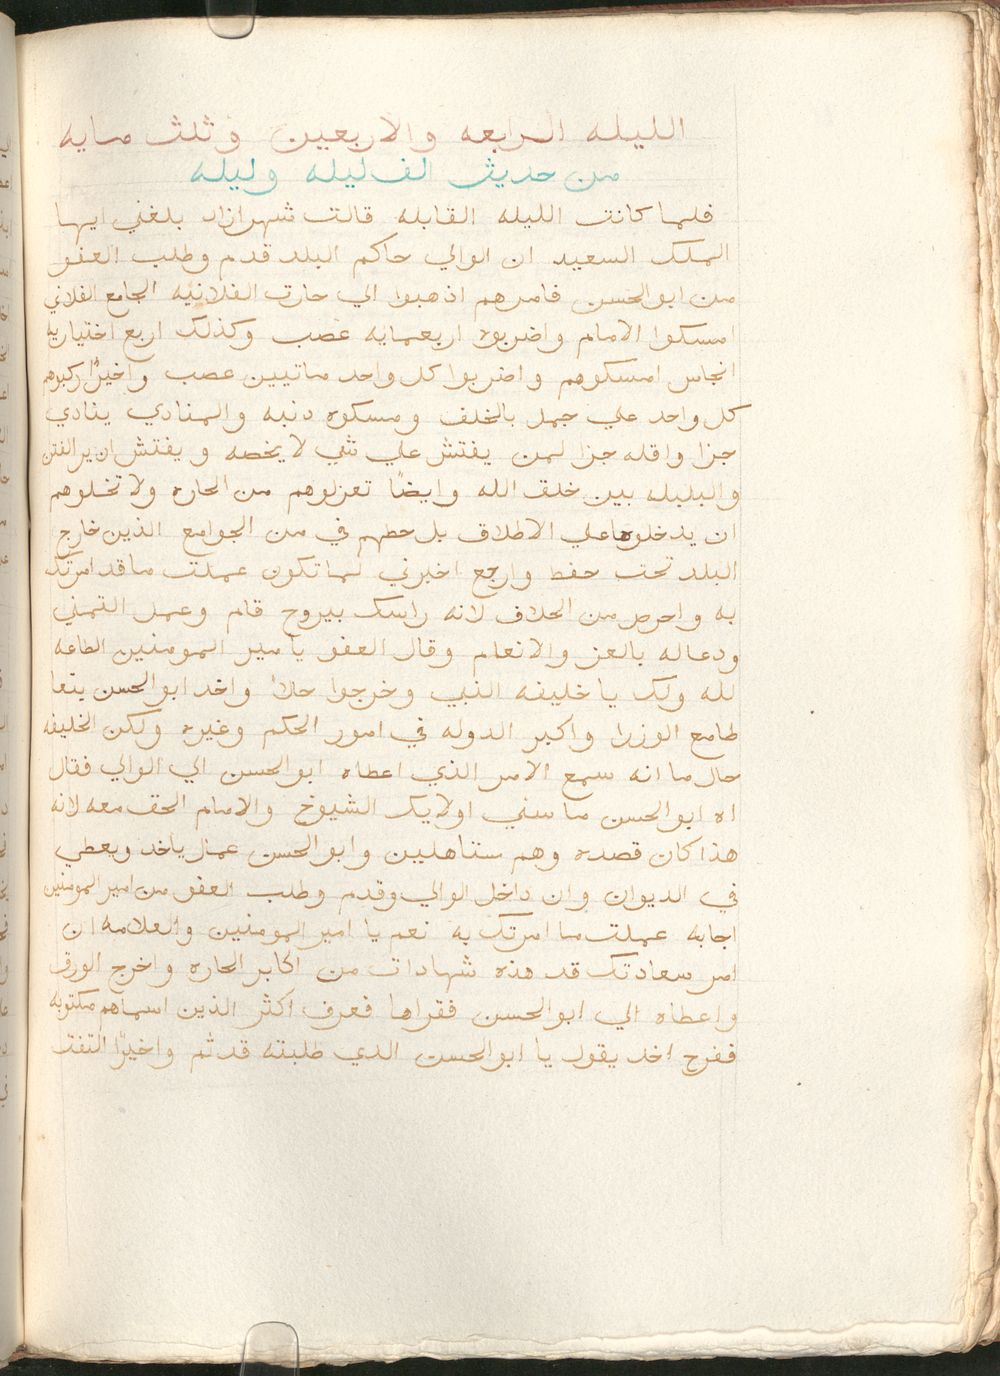 الليله الرابعه والاربعين وثلث مايه
من حديث الف ليله وليله
فلما كانت الليله القابله قالت شهرازاد بلغني ايها
الملك السعيد ان الوالي حاكم البلد قدم وطلب العفو
من ابو الحسن فامرهم اذهبوا الي حارت الفلانيه الجامع الفلاني
امسكوا الامام واضربوه اربعمايه غصب وكذلك اربع اختياريه
انجاس امسكوهم واضربوا كل واحد ماتيين عصب واخيرًا ركبوهم
كل واحد علي جمل بالخلف ومسكوه دنبه والمنادي ينادي
جزا واقله جزا لمن يفتش علي شي لا يخصه ويفتش ان ير الفتن
والبلبله بين خلق الله وايضًا تعزلوهم من الحاره ولا تخلوهم
ان يدخلوها علي الاطلاق بل حطهم في من الجوامع الذين خارج
البلد تحت حفط وارجع اخبرني لما تكون عملت ما قد امرتك
به واحرص من الخلاف لانه راسك بيروح قام وعمل التمني
ودعاله بالعز والانعام وقال العفو يا مير المومنين الطاعه
لله ولك يا خليفه النبي وخرجوا حلاً واخد ابو الحسن يتعا
طامع الوزرا واكبر الدوله في امور الحكم وغيره ولكن الخليفه
حال ما انه سمع الامر الذي اعطاه ابو الحسن الي الوالي فقال
اه ابو الحسن ما سني اولايك الشيوخ والامام الحق معه لانه
هذا كان قصده وهم ستاهلين وابو الحسن عمال ياخد ويعطي
في الديوان وان داخل الوالي وقدم وطلب العفو من امير المومنين
اجابه عملت ما امرتك به نعم يا امير المومنين والعلامه ان
امر سعادتك قد هذه شهادات من اكابر الحاره واخرج الورق
واعطاه الي ابو الحسن فقراها فعرف اكثر الذين اسماهم مكتوبه
ففرح اخد يقول يا ابو الحسن الدي طلبته قد تم واخيرًا التفت